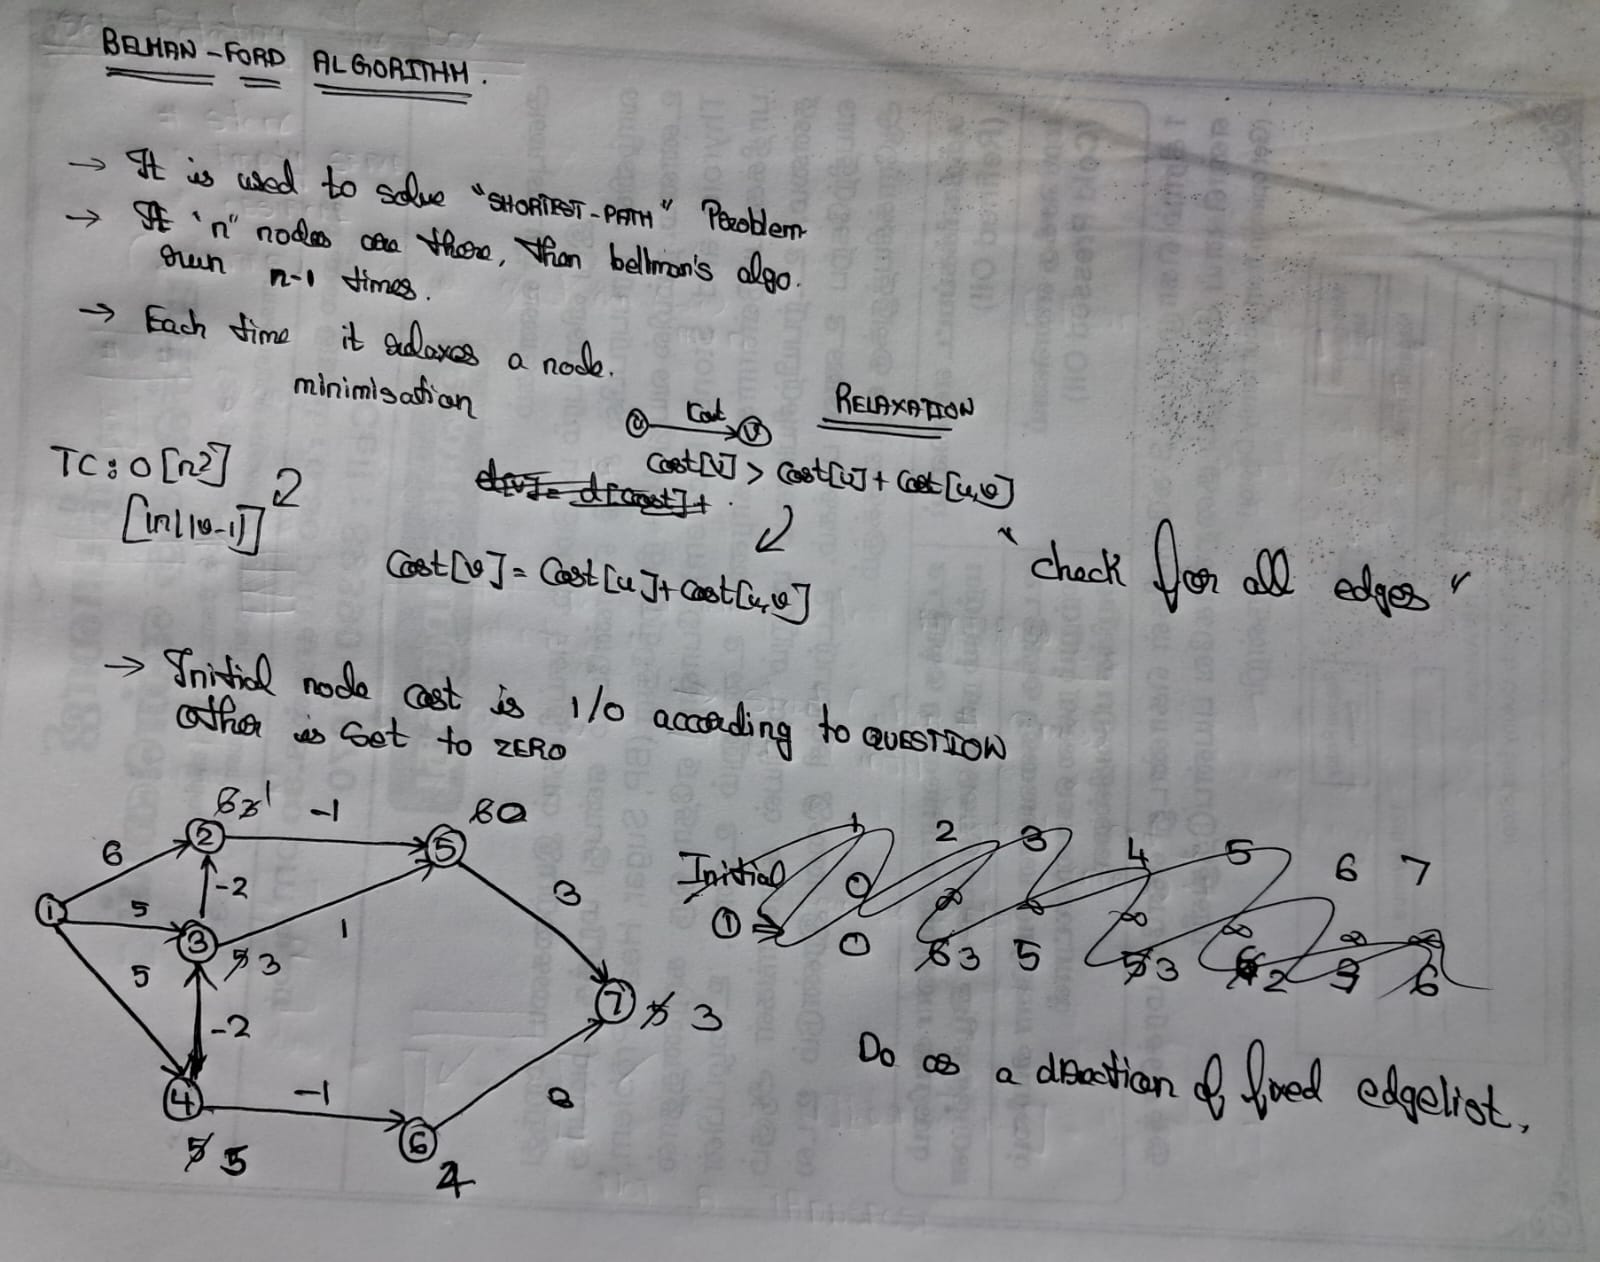 BELMAN-FORD ALGORITHM.
→ It is used to solve "SHORTEST-PATH" Problem
→ If 'n" nodes are there, then bellman's algo.
run n-1 times.
→ Each time it relaxes a node.
minimisation
u Cost v RELAXATION
TC: O[n²]
Cost[v] > Cost[u] + Cost[u,v]
Cost[v] = Cost[u] + Cost[u,v]
"check for all edges"
→ Initial node cost is 1/0 according to QUESTION
other is Set to ZERO
6 2 -1 5
1 5 3 -2 1 3
5 -2 7
4 -1 6
5 3
3
5 5
1 2 3 4 5 6 7
Initial 0 ∞ ∞ ∞ ∞ ∞ ∞
1 0 3 5 3
Do as a direction of fixed edgelist.